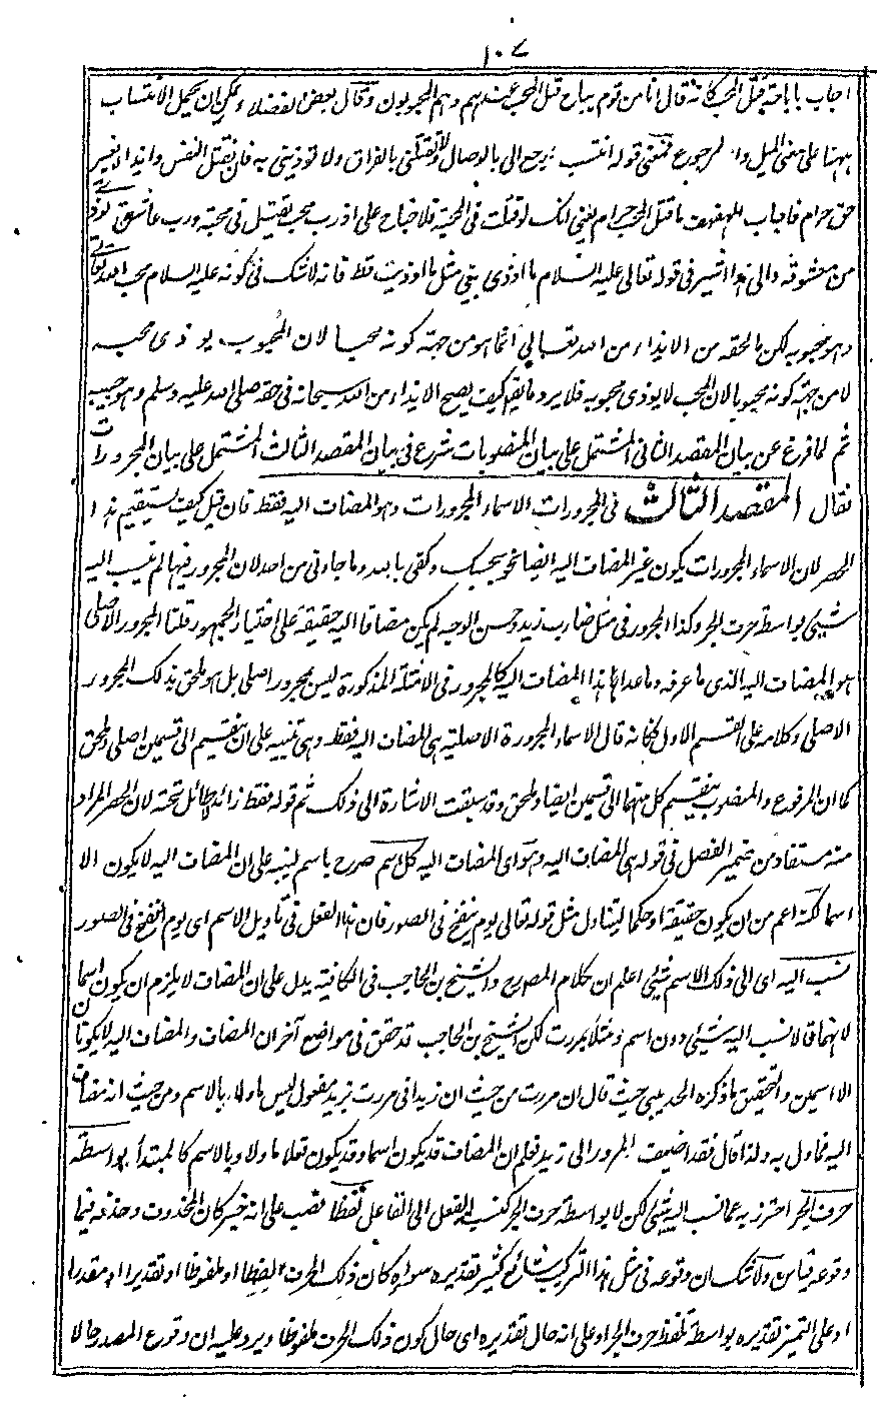 ١٠٧
اجاب باباحة قتل المحب كانه قال انا من قوم يباح قتل المحب عندهم وهم المحبوبون وقال بعض الفضلاء يمكن ان يحمل الانتساب
ههنا على معنى الميل والرجوع فمعنى قوله انتسب يرجع الى بالوصال ولا تقتلنى بالفراق ولا تؤذينى به فان قتل النفس وايذاء بغير
حق حرام فاجاب المهفهف ما قتل المحب حرام يعنى انك لو قتلت فى المحبة فلا جناح على اذ رب محب يقتل فى محبته ورب عاشق يؤذى
من معشوقه والى هذا اشير فى قوله تعالى عليه السلام ما اوذى نبى مثل ما اوذيت قط فانه لا شك فى كونه عليه السلام محب الله تعالى
وهو محبوبه لكن ما لحقه من الايذاء من الله تعالى انما هو من جهة كونه محبا لان المحبوب يوذى محبه
لا من جهة كونه محبوبا لان المحب لا يوذى محبوبه فلا يرد ما يقم كيف يصح الايذاء من الله سبحانه فى حقه صلى الله عليه وسلم وهو حبيبه
ثم لما فرغ عن بيان المقصد الثانى المشتمل على بيان المنصوبات شرع فى بيان المقصد الثالث المشتمل على بيان المجرورات
فقال المقصد الثالث فى المجرورات الاسماء المجرورات وهو المضاف اليه فقط فان قيل كيف يستقيم هذا
الحصر لان الاسماء المجرورات يكون غير المضاف اليه ايضا نحو بحسبك وكفى بالله وما جاءنى من احد لان المجرور فيها لم ينسب اليه
شيئ بواسطة حرف الجر وكذا المجرور فى مثل ضارب زيد وحسن الوجه لم يكن مضافا اليه حقيقة على اختيار الجمهور قلنا المجرور الاصلى
هو المضاف اليه الذى ما عرفه وما عداه هذا المضاف اليه كالمجرور فى الامثلة المذكورة ليس بمجرور اصلى بل هو ملحق بذلك المجرور
الاصلى وكلامه على القسم الاول فكانه قال الاسماء المجرورة الاصلية هى المضاف اليه فقط وهى تنبيه على ان ينقسم الى قسمين اصلى وملحق
كما ان المرفوع والمنصوب ينقسم كل منهما الى قسمين ايضا وملحق وقد سبقت الاشارة الى ذلك ثم قوله فقط زائد لا طائل تحته لان الحصر المراد
منه مستفاد من ضمير الفصل فى قوله هى المضاف اليه وهو اى المضاف اليه كل اسم صرح باسم لينبه على ان المضاف اليه لا يكون الا
اسما لكنه اعم من ان يكون حقيقة او حكما ليتناول مثل قوله تعالى يوم ينفخ فى الصور فان هذا الفعل فى تاويل الاسم اى يوم النفخ فى الصور
نسب اليه اى الى ذلك الاسم شيئى اعلم ان كلام المصرح والشيخ بن الحاجب فى الكافية يدل على ان المضاف لا يلزم ان يكون اسما
لانهما قالا نسب اليه شيئى دون اسم ومثلا بمررت لكن الشيخ بن الحاجب قد حقق فى مواضع آخر ان المضاف والمضاف اليه لا يكونان
الا اسمين والتحقيق ما ذكره الحديبى حيث قال ان مررت من حيث ان زيدا فى مررت بزيد مفعول ليس ماولا بالاسم ومن حيث انه مضاف
اليه فماول به ولذا قال فقد اضيفت المرور الى زيد فعلم ان المضاف قد يكون اسما وقد يكون فعلا ماولا وبالاسم كالمبتدأ بواسطة
حرف الجر احترز به عما نسب اليه شيئى لكن لا بواسطة حرف الجر كنسبة الفعل الى الفاعل لفظا نصب على انه خبر كان المحذوف وحذفه فيما
وقوعه قياس ولا شك ان وقوعه فى مثل هذا التركيب شائع كثير تقديره سواء كان ذلك الحرف لفظا او ملفوظا او تقديرا او مقدرا
او على التميز تقديره بواسطة تلفظ حرف الجر او على انه حال تقديره اى حال كون ذلك الحرف ملفوظا ويرد عليه ان وقوع المصدر حالا